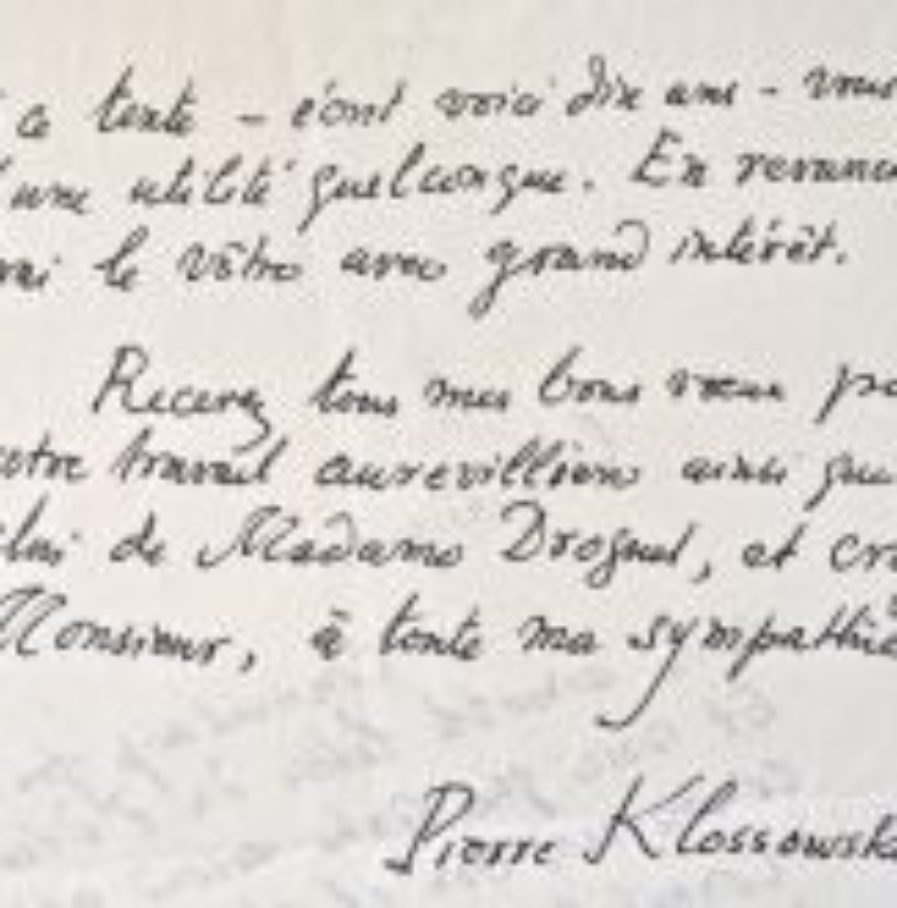 ce texte - écrit voici dix ans - vous
une utilité quelconque. En revanc
rai le vôtre avec grand intérêt.
Recevez tous mes bons vœux po
otre travail aurevillien ainsi que
elui de Madame Drognet, et cro
Monsieur, à toute ma sympathie
Pierre Klossowsk